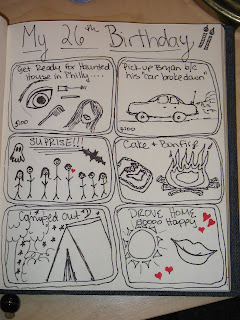 My 26th Birthday
Get Ready for Haunted
House in Philly....
5:00
Pick up Bryan b/c
his "car broke down"
SUPRISE!!!
Cake & Bonfire
Camped Out
DROVE HOME
Happy